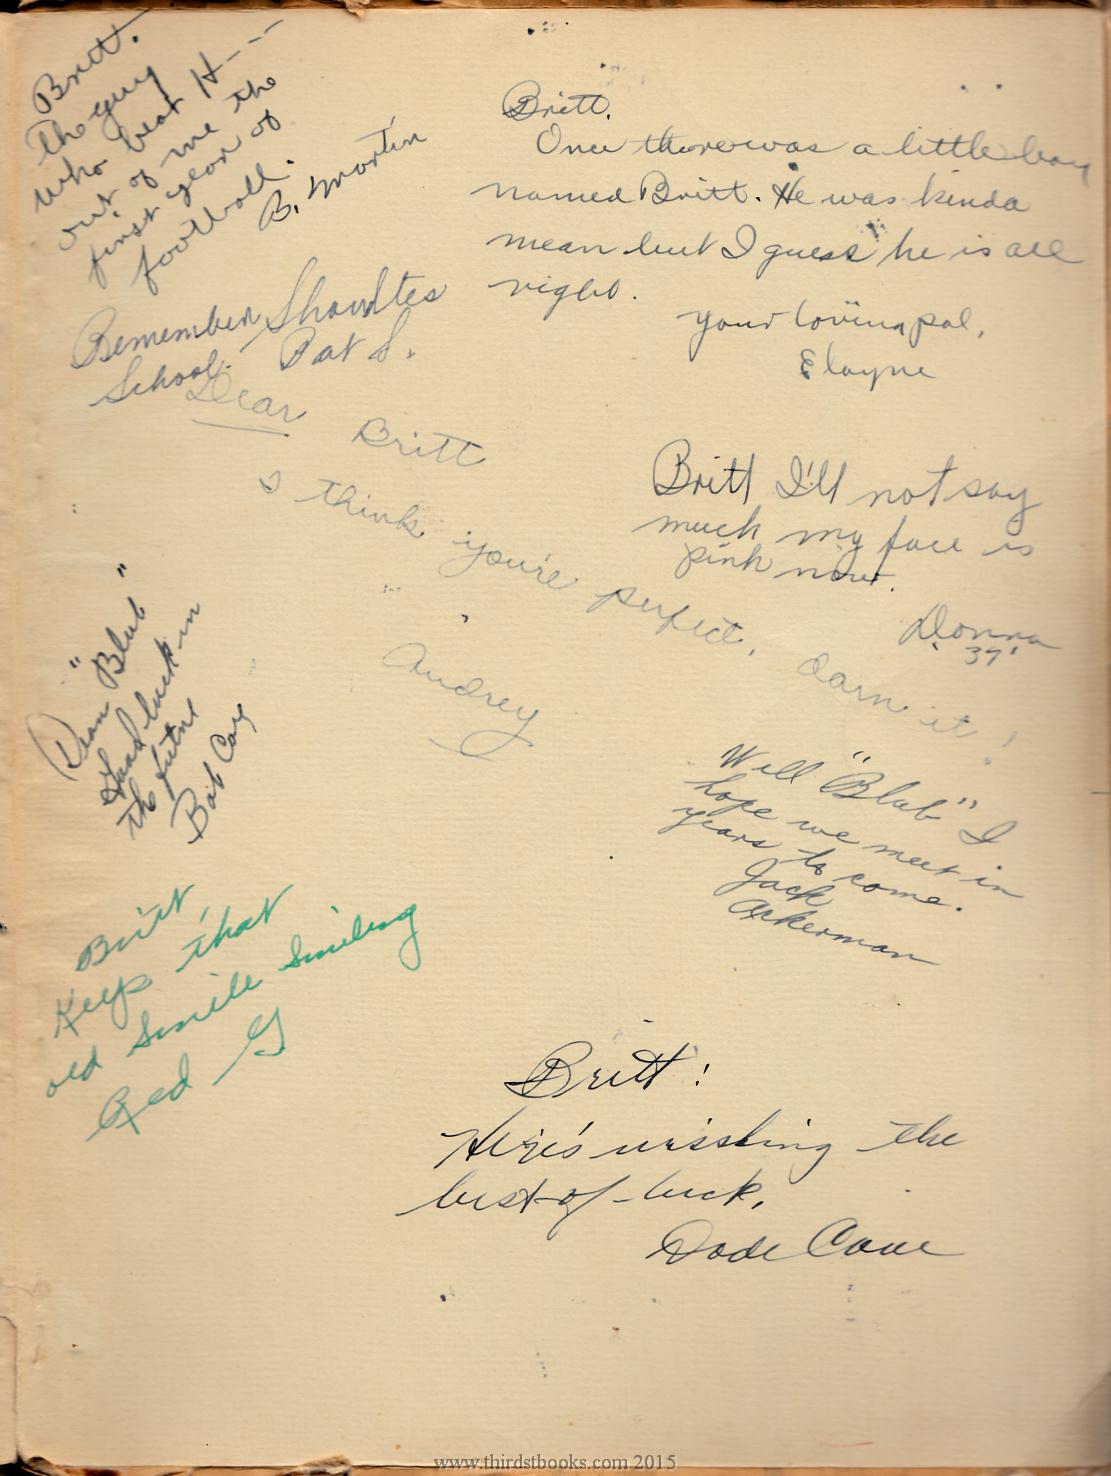 Britt.
The guy
who beat H---
out of me the
first year of
football.
B. Martin
Britt.
Once there was a little boy
named Britt. He was kinda
mean but I guess he is all
right.
your loving pal,
Elayne
Remember
School.
Pat S.
Dear Britt
I think you're perfect, darn it!
Audrey
Britt I'll not say
much my face is
pink now.
Donna
'37'
Dear "Blub"
Good luck in
the future
Bob
Well "Blub" I
hope we meet in
years to come.
Jack
Ackerman
Britt,
Keep that
old smile smiling
Red G
Britt:
Here's wishing the
best-of-luck,
Dode
www.thirdstbooks.com 2015